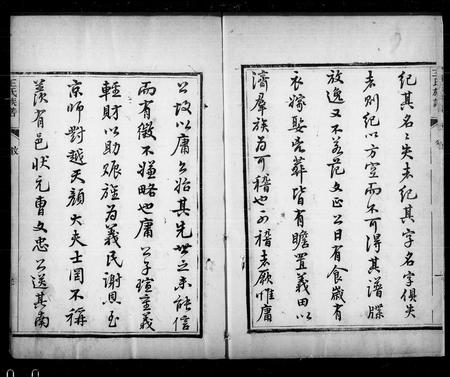 紀其名名失者紀其字名字俱失
者則紀以方空而不可得其譜牒
放逸又不若范文正公日有食歲有
衣嫁娶喪葬皆有贍置義田以
濟群族爲可稽也可稽者厥惟庸
公故以庸公始其先世之未能信
而有徵不嫌略也庸公子瑄主義
輕財以助賑旌爲義民謝恩至
京師對越天顏大夫士罔不稱
羨有邑狀元曹文忠公送其南
王氏族譜
王氏族譜
敘